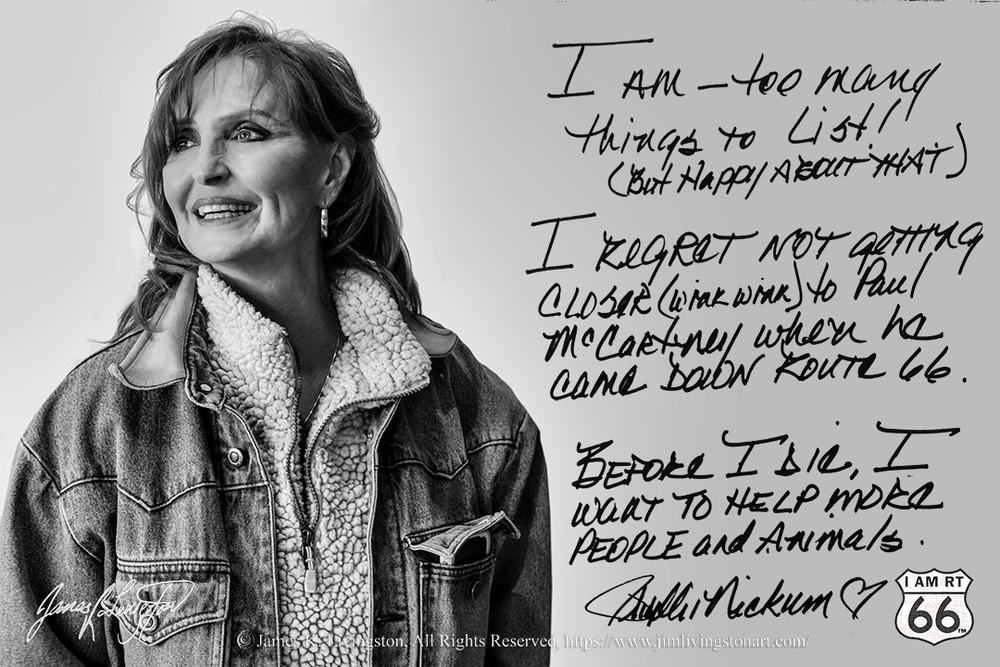 I AM – too many
things to List!
(But Happy ABOUT THAT)
I REGRET NOT getting
CLOSER (wink wink) to Paul
McCartney when he
came DOWN ROUTE 66.
BEFORE I DIE, I
want TO HELP MORE
PEOPLE and Animals.
Nickum
I AM RT
66
TM
James
© James K. Livingston, All Rights Reserved, https://www.jimlivingstonart.com/